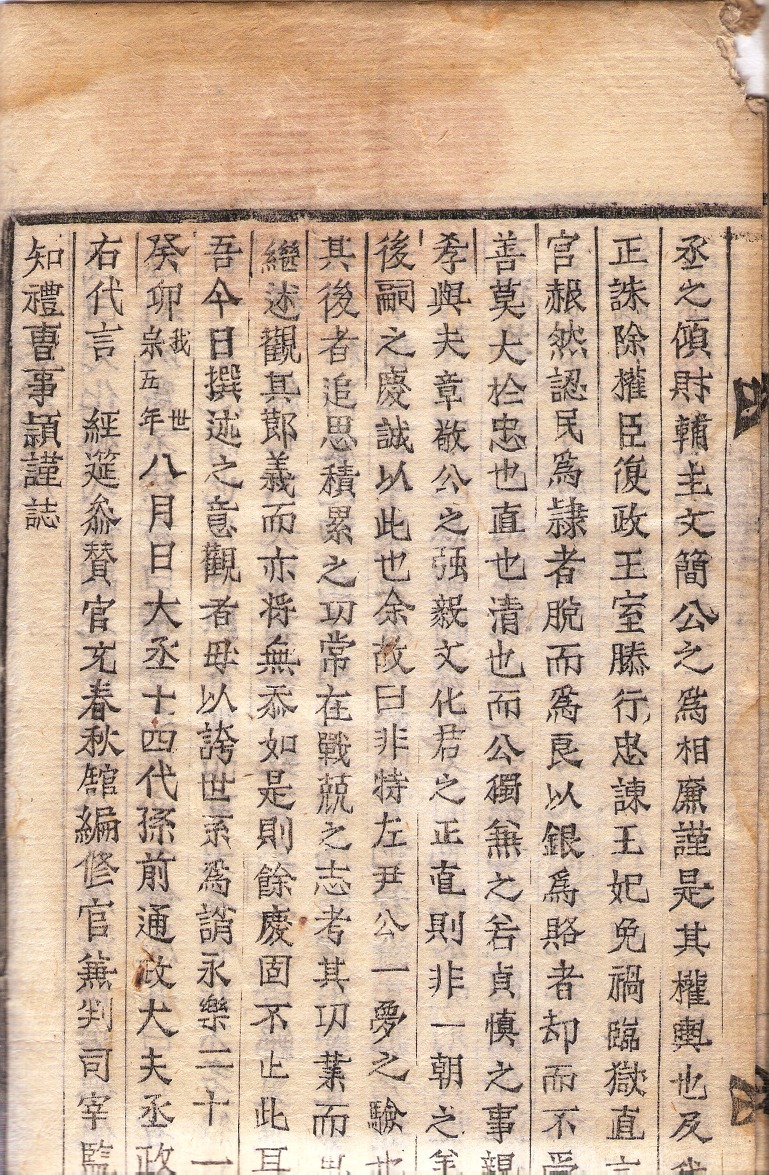 丞之傾財輔主文簡公之爲相廉謹是其權輿也及
正誅除權臣復政王室縢行忠諫王妃免禍臨獄直
官赧然認民爲隷者脫而爲良以銀爲賂者却而不受
善莫大於忠也直也清也而公獨兼之若貞愼之事親
孝與夫章敬公之强毅文化君之正直則非一朝之
後嗣之慶誠以此也余故曰非特左尹公一夢之驗也
其後者追思積累之功常在戰兢之志考其功業而思
繼述觀其郞義而亦將無忝如是則餘慶固不止此耳
吾今日撰述之意觀者毋以誇世系爲誚永樂二十一
癸卯我世宗五年八月日大丞十四代孫前通政大夫丞政
右代言 經筵叅贊官充春秋舘編修官兼判司宰監
知禮曹事頴謹誌